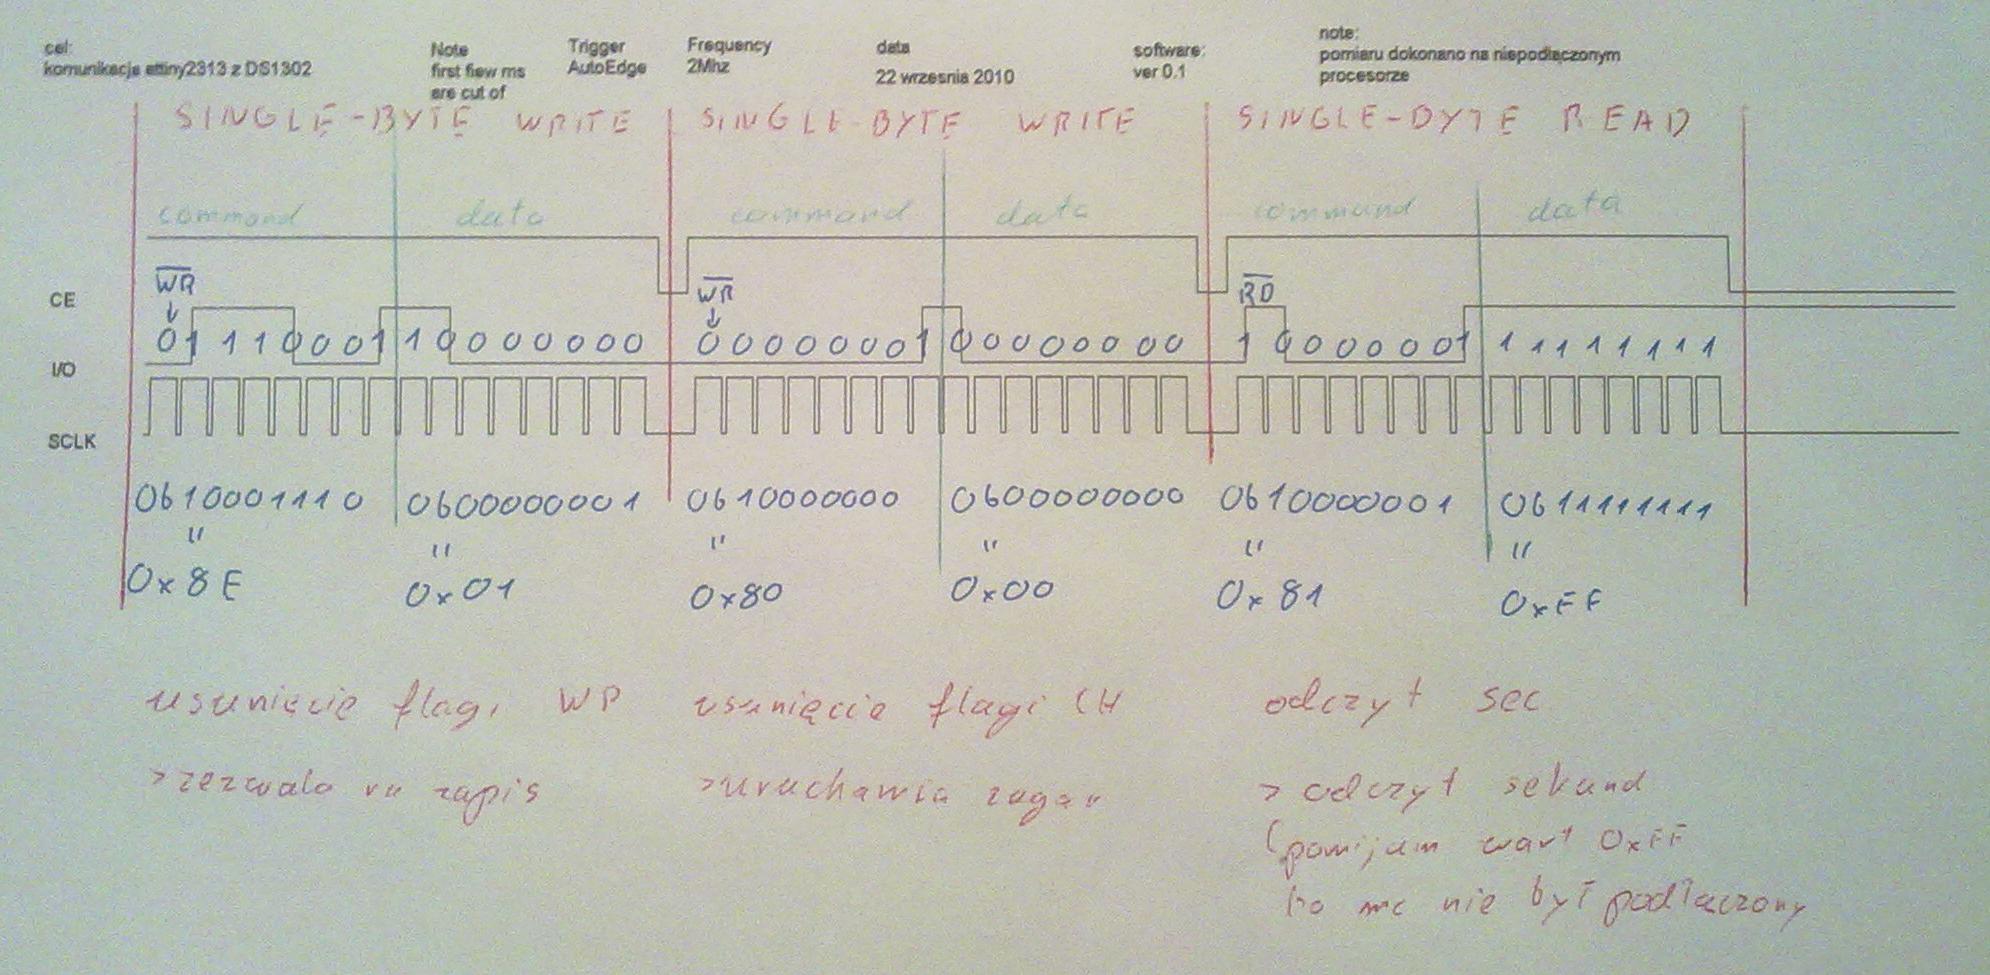 cel:
komunikacja attiny2313 z DS1302
Note
first fiew ms
are cut of
Trigger
AutoEdge
Frequency
2Mhz
data
22 wrzesnia 2010
software:
ver 0.1
note:
pomiaru dokonano na niepodłączonym
procesorze
SINGLE-BYTE WRITE
SINGLE-BYTE WRITE
SINGLE-BYTE READ
command data command data command data
WR WR RD
CE
0 1 1 1 0 0 0 1 1 0 0 0 0 0 0 0 0 0 0 0 0 0 0 1 0 0 0 0 0 0 0 0 1 0 0 0 0 0 0 1 1 1 1 1 1 1 1 1
I/O
SCLK
0b10001110 0b00000001 0b10000000 0b00000000 0b10000001 0b11111111
" " " " " "
0x8E 0x01 0x80 0x00 0x81 0xFF
usunięcie flagi WP usunięcie flagi CH odczyt sec
> zezwala na zapis > uruchamia zegar > odczyt sekund
(pomijam wart 0xFF
bo mc nie był podłączony